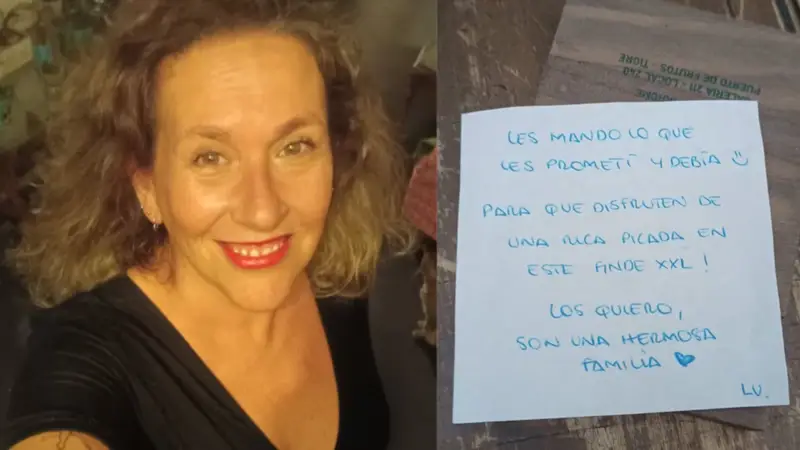 ALERIA 211 - LOCAL 240
PUERTO DE FRUTOS TIGRE
LES MANDO LO QUE
LES PROMETÍ Y DEBÍA
PARA QUE DISFRUTEN DE
UNA RICA PICADA EN
ESTE FINDE XXL!
LOS QUIERO,
SON UNA HERMOSA
FAMILIA
LU.